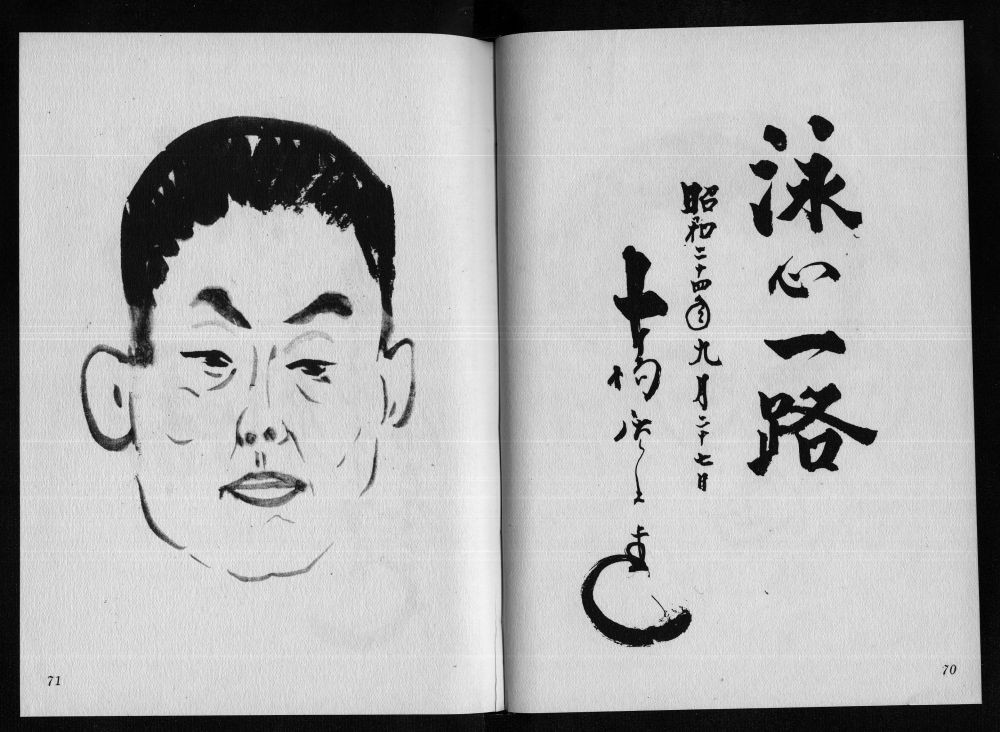 泳心一路
昭和二十四年九月二十七日
古橋廣之進
70
71